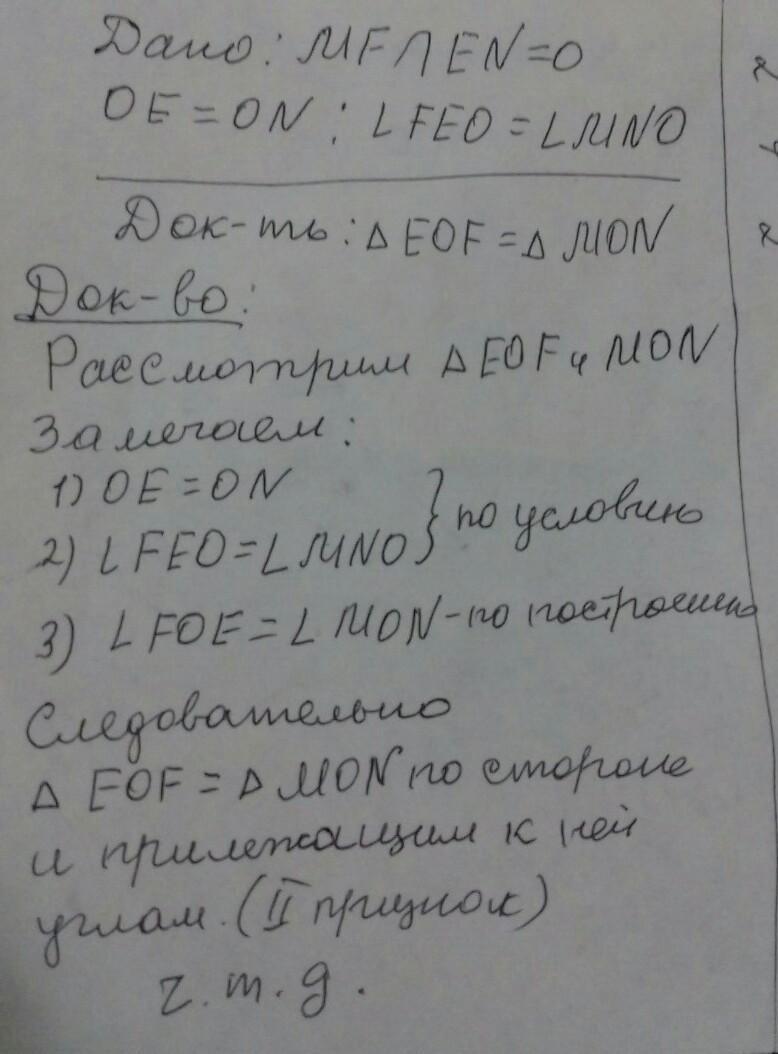 Дано: MF∩EN=O
OE=ON; ∠FEO=∠MNO
Док-ть: △EOF=△MON
Док-во:
Рассмотрим △EOF и MON
Замечаем:
1) OE=ON
2) ∠FEO=∠MNO } по условию
3) ∠FOE=∠MON-по построению
Следовательно
△EOF=△MON по стороне
и прилежащим к ней
углам. (II признак)
ч.т.д.